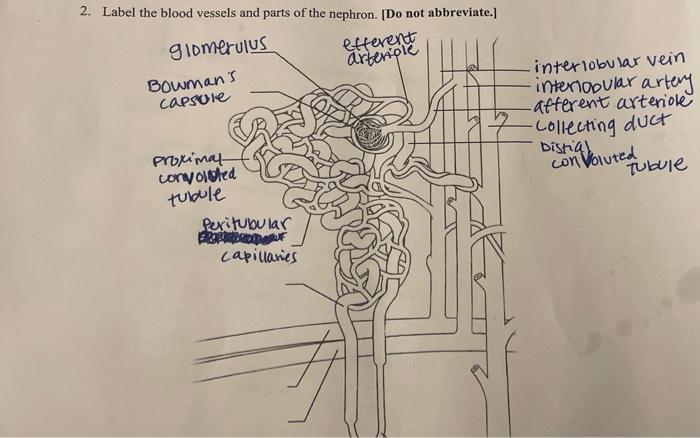 2. Label the blood vessels and parts of the nephron. [Do not abbreviate.]
glomerulus
efferent
arteriole
Bowman's
capsule
proximal
convoluted
tubule
Peritubular
capillaries
interlobular vein
interlobular artery
afferent arteriole
collecting duct
Distial
convoluted
Tubule